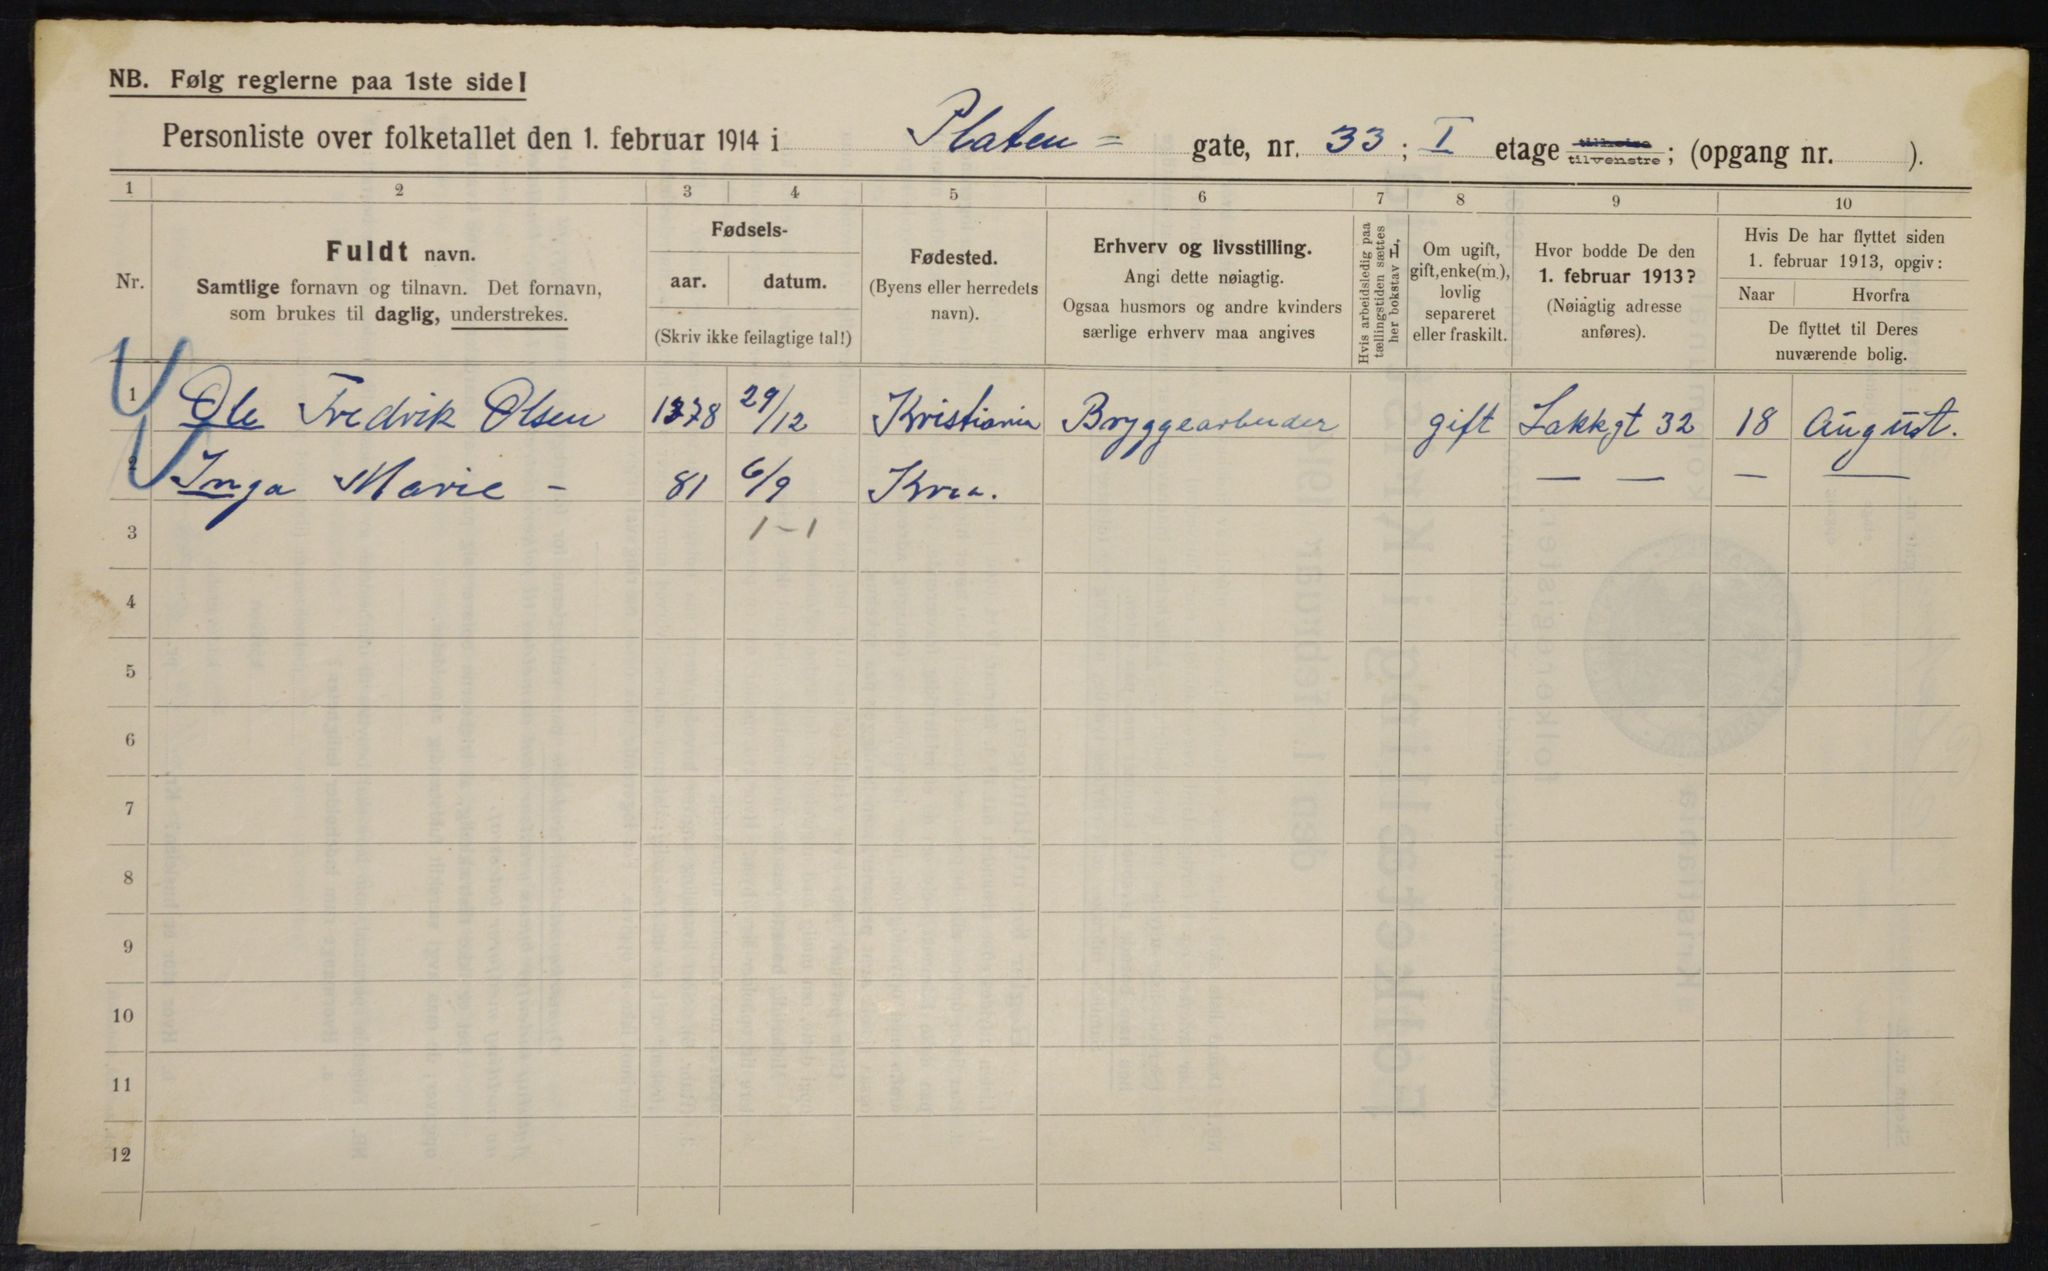 NB. Følg reglerne paa 1ste side!
Personliste over folketallet den 1. februar 1914 i Platen= gate, nr. 33; I etage tilhøire tilvenstre; (opgang nr. ).
1 2 3 4 5 6 7 8 9 10
Nr.
Fuldt navn.
Samtlige fornavn og tilnavn. Det fornavn,
som brukes til daglig, understrekes.
Fødsels-
aar. datum.
(Skriv ikke feilagtige tal!)
Fødested.
(Byens eller herredets
navn).
Erhverv og livsstilling.
Angi dette nøiagtig.
Ogsaa husmors og andre kvinders
særlige erhverv maa angives
Hvis arbeidsledig paa
tællingstiden sættes
her bokstav L
Om ugift,
gift, enke(m.),
lovlig
separeret
eller fraskilt.
Hvor bodde De den
1. februar 1913?
(Nøiagtig adresse
anføres).
Hvis De har flyttet siden
1. februar 1913, opgiv:
Naar Hvorfra
De flyttet til Deres
nuværende bolig.
1 Ole Fredrik Olsen 1878 29/12 Kristiania Bryggearbeider gift Lakkgt 32 18 August.
2 Inga Marie - 81 6/9 Kria. — — — —
3 1-1
4
5
6
7
8
9
10
11
12